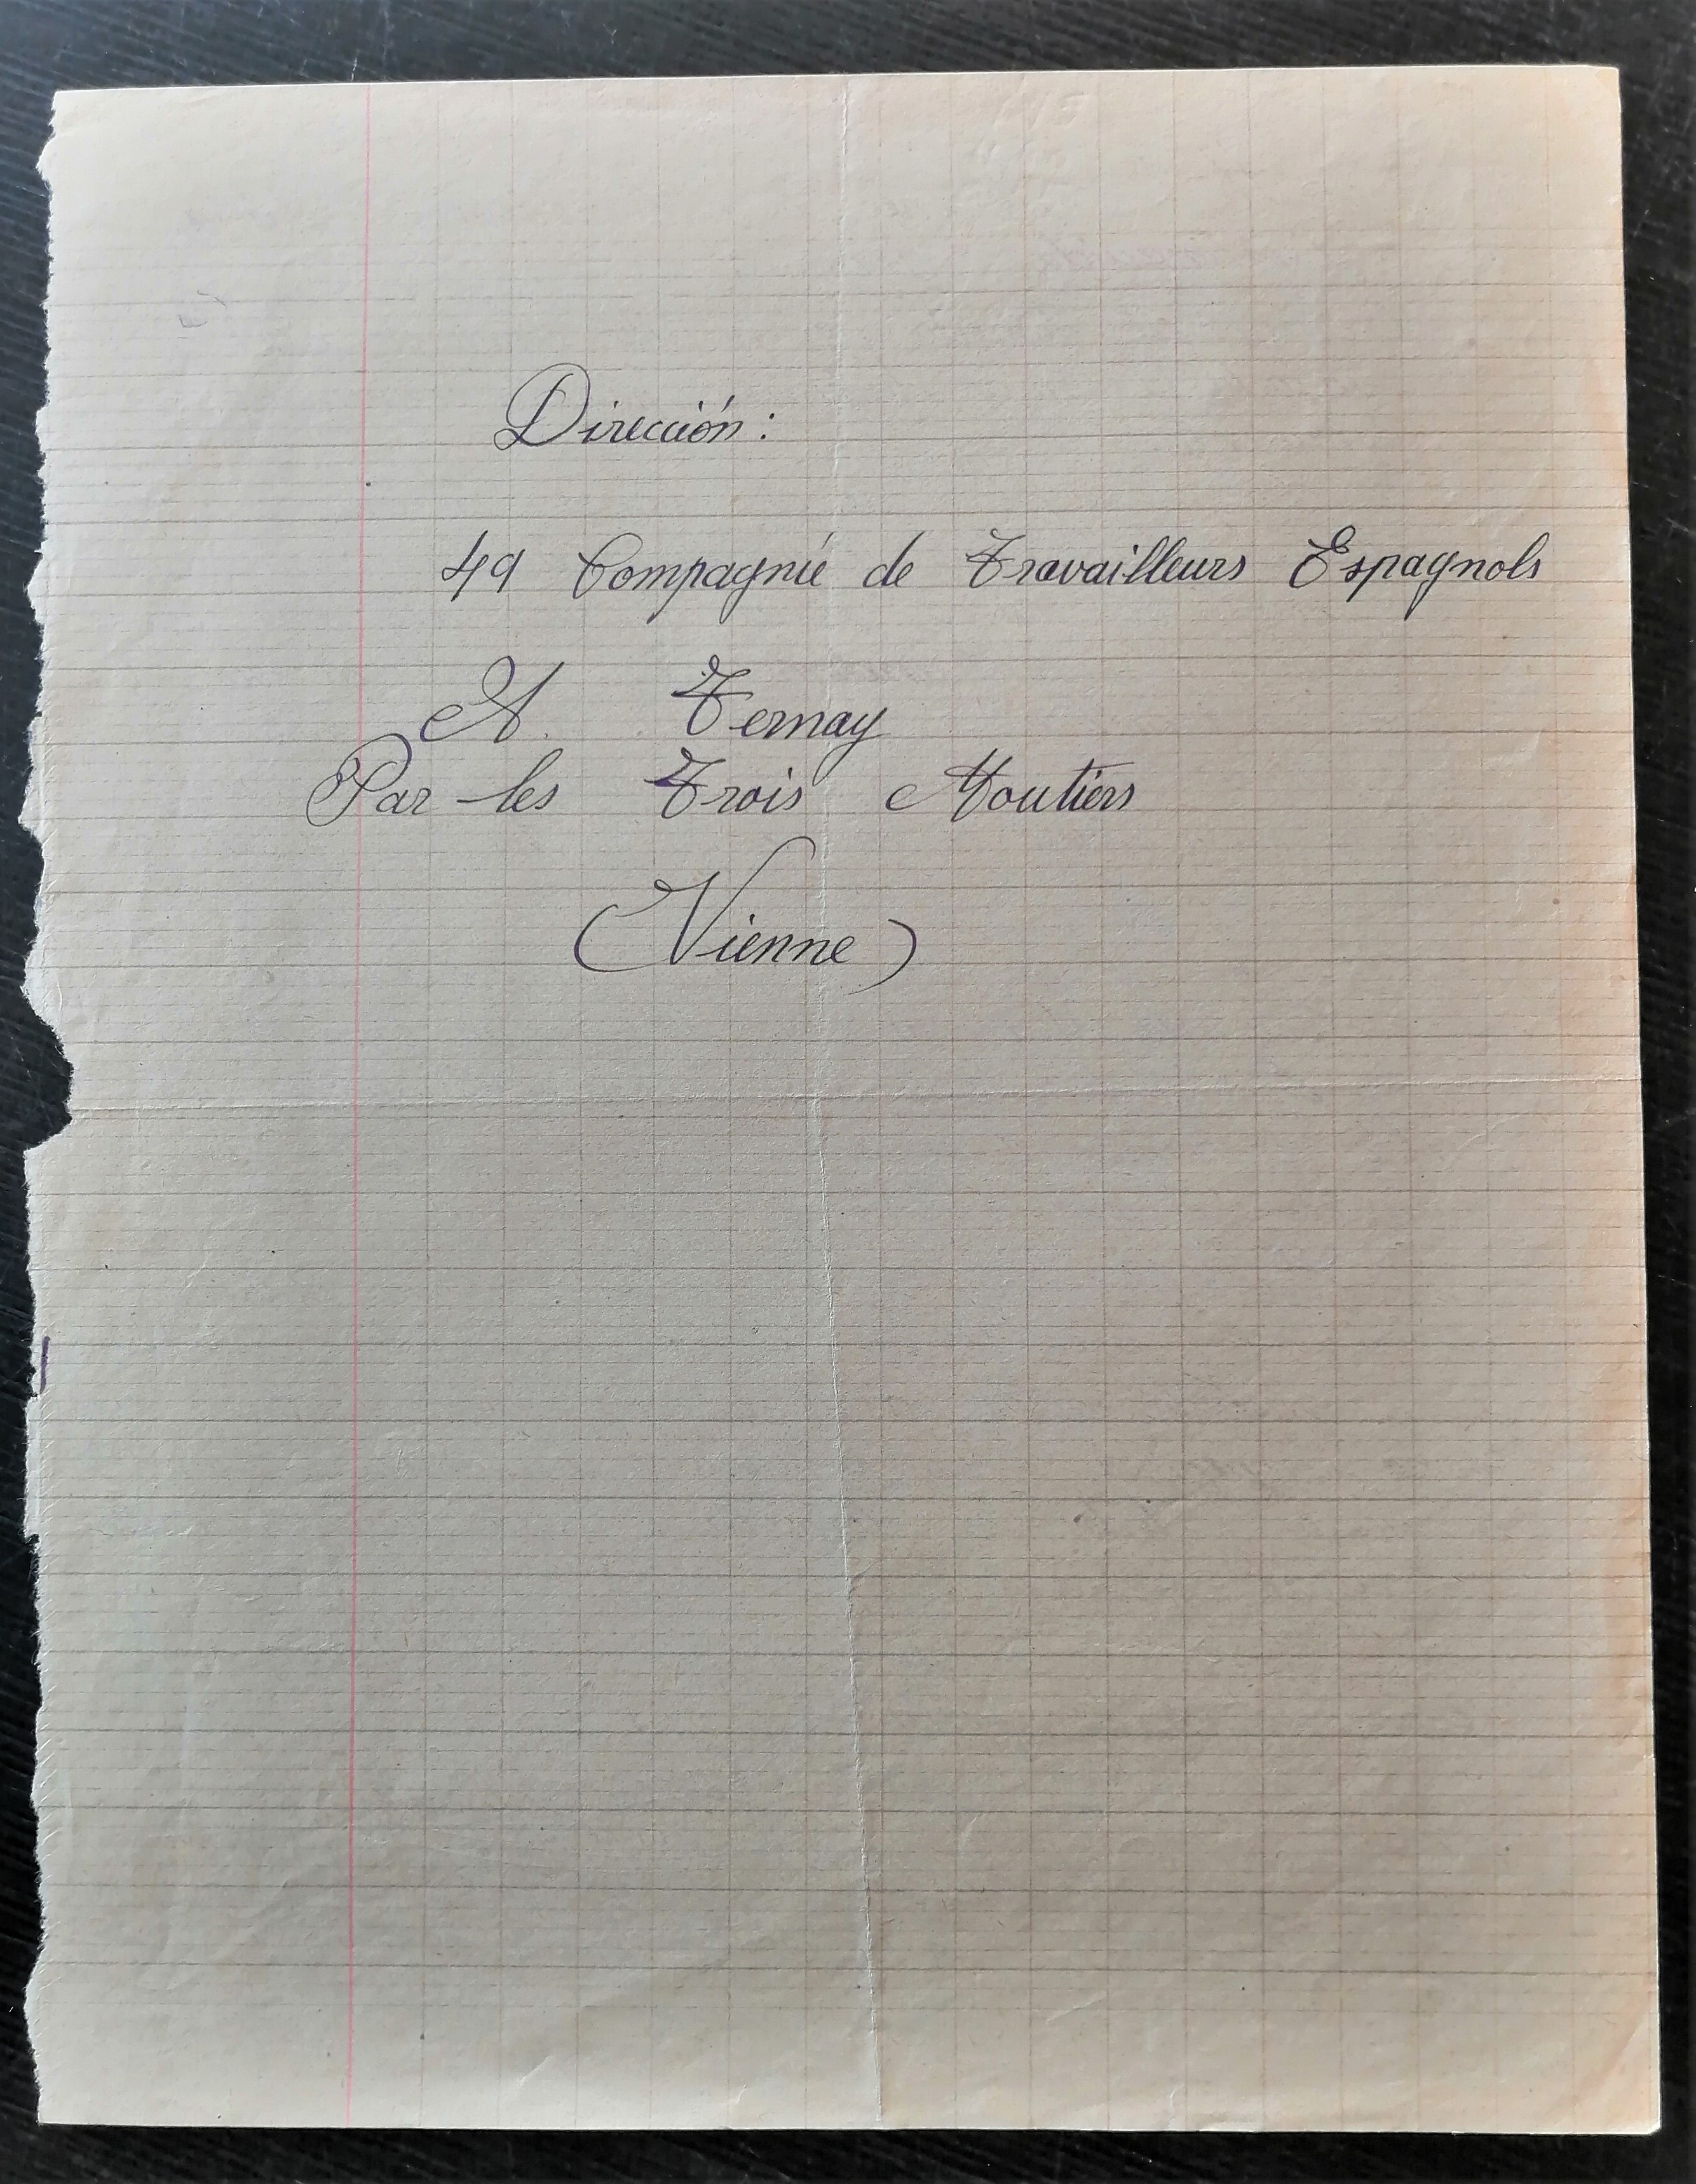 Dirección:
49 Compagnie de Travailleurs Espagnols
A. Ternay
Par les Trois Moutiers
(Vienne)